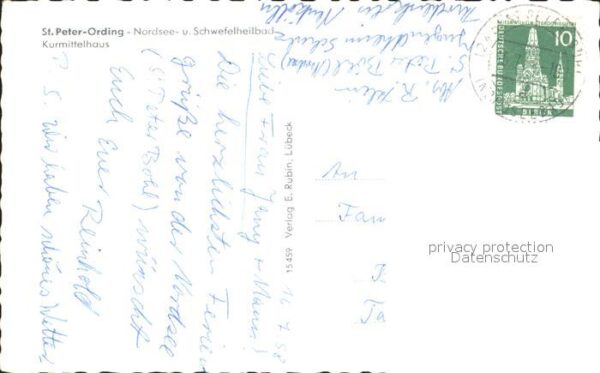 St. Peter-Ording - Nordsee- u. Schwefelheilbad
Kurmittelhaus
Abs. R. Klein
St. Peter Böhl (Nordsee)
Jugendheim
16.7.58
Liebe Frau Jung + Mann!
Die herzlichsten Ferien
grüße von der Nordsee
(St. Peter Böhl) wünscht
Euch Euer Reinhold
P. S. Wir haben schönes Wetter.
15 459 Verlag E. Rubin, Lübeck
10
DEUTSCHE BUNDESPOST
BERLIN
An
Fam
privacy protection
Datenschutz